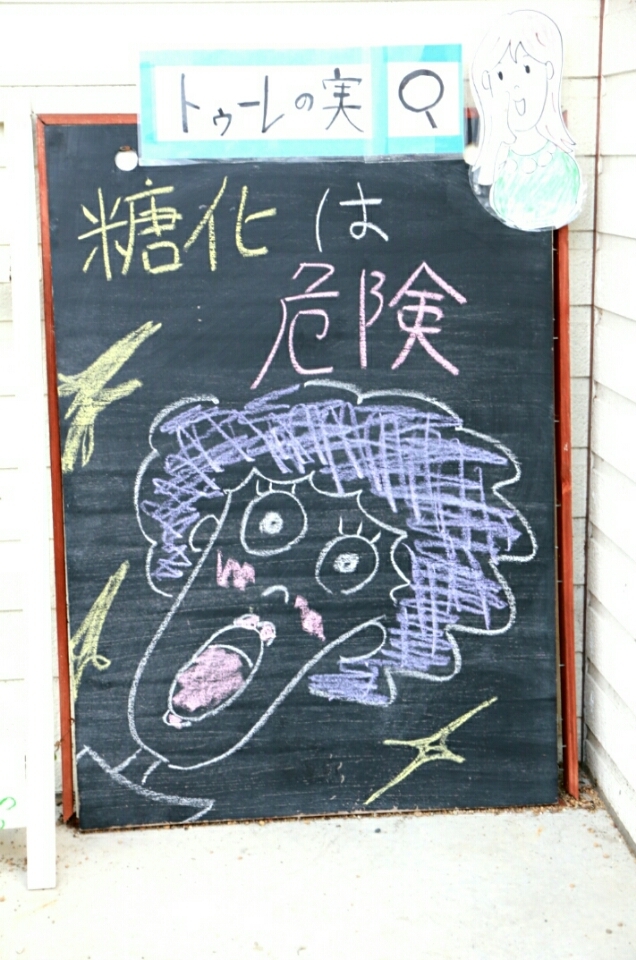 トゥーレの実
糖化は
危険